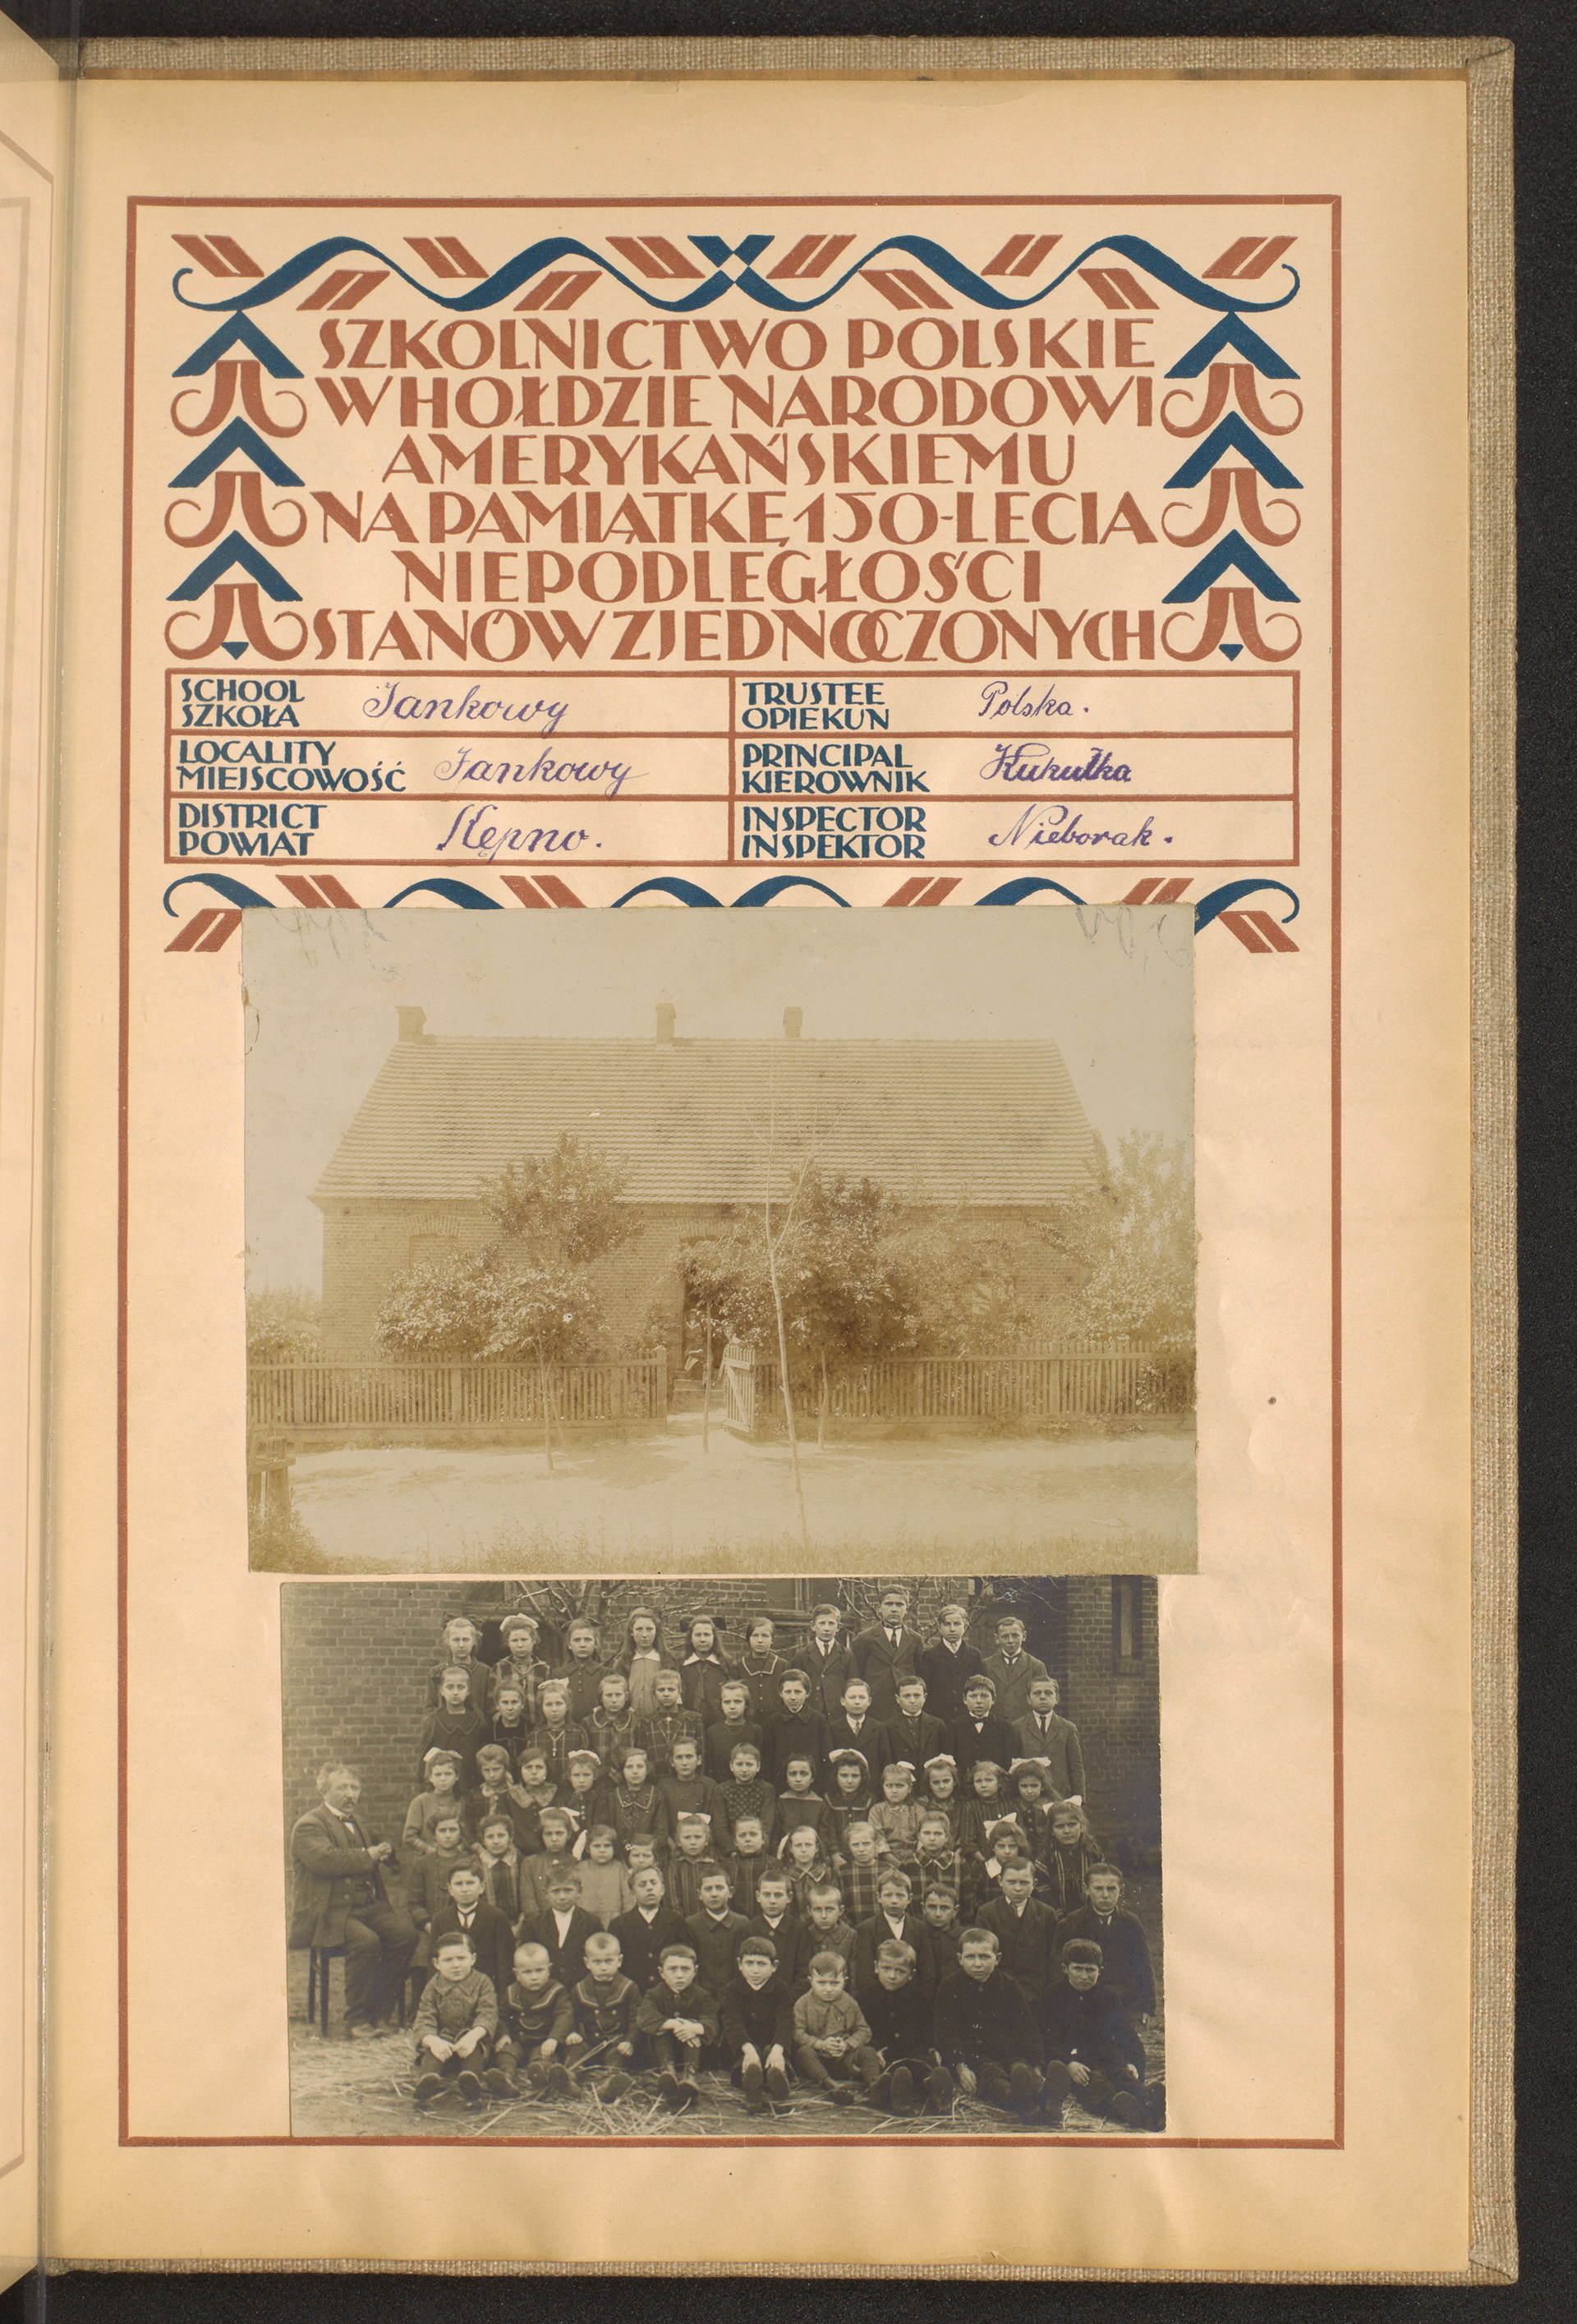 SZKOLNICTWO POLSKIE
W HOŁDZIE NARODOWI
AMERYKAŃSKIEMU
NA PAMIĄTKĘ 150-LECIA
NIEPODLEGŁOŚCI
STANÓW ZJEDNOCZONYCH
SCHOOL
SZKOŁA
Jankowy
TRUSTEE
OPIEKUN
Polska.
LOCALITY
MIEJSCOWOŚĆ
Jankowy
PRINCIPAL
KIEROWNIK
Kukułka
DISTRICT
POWIAT
Kępno.
INSPECTOR
INSPEKTOR
Nieborak.